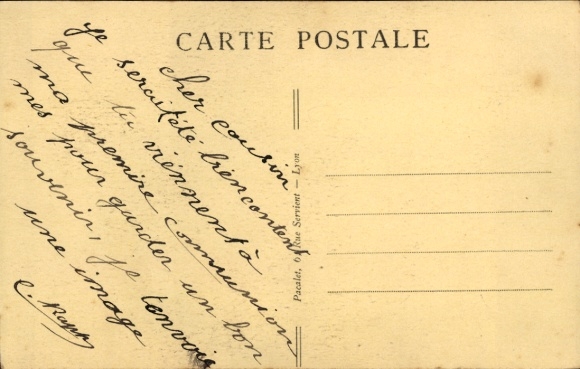 CARTE POSTALE
cher cousin
Je serait été bien content
que tu viennent à
ma premire communion
mes pour garder un bon
souvenir, je tenvoie
une image
C.
Pacalet, Rue Servient — Lyon